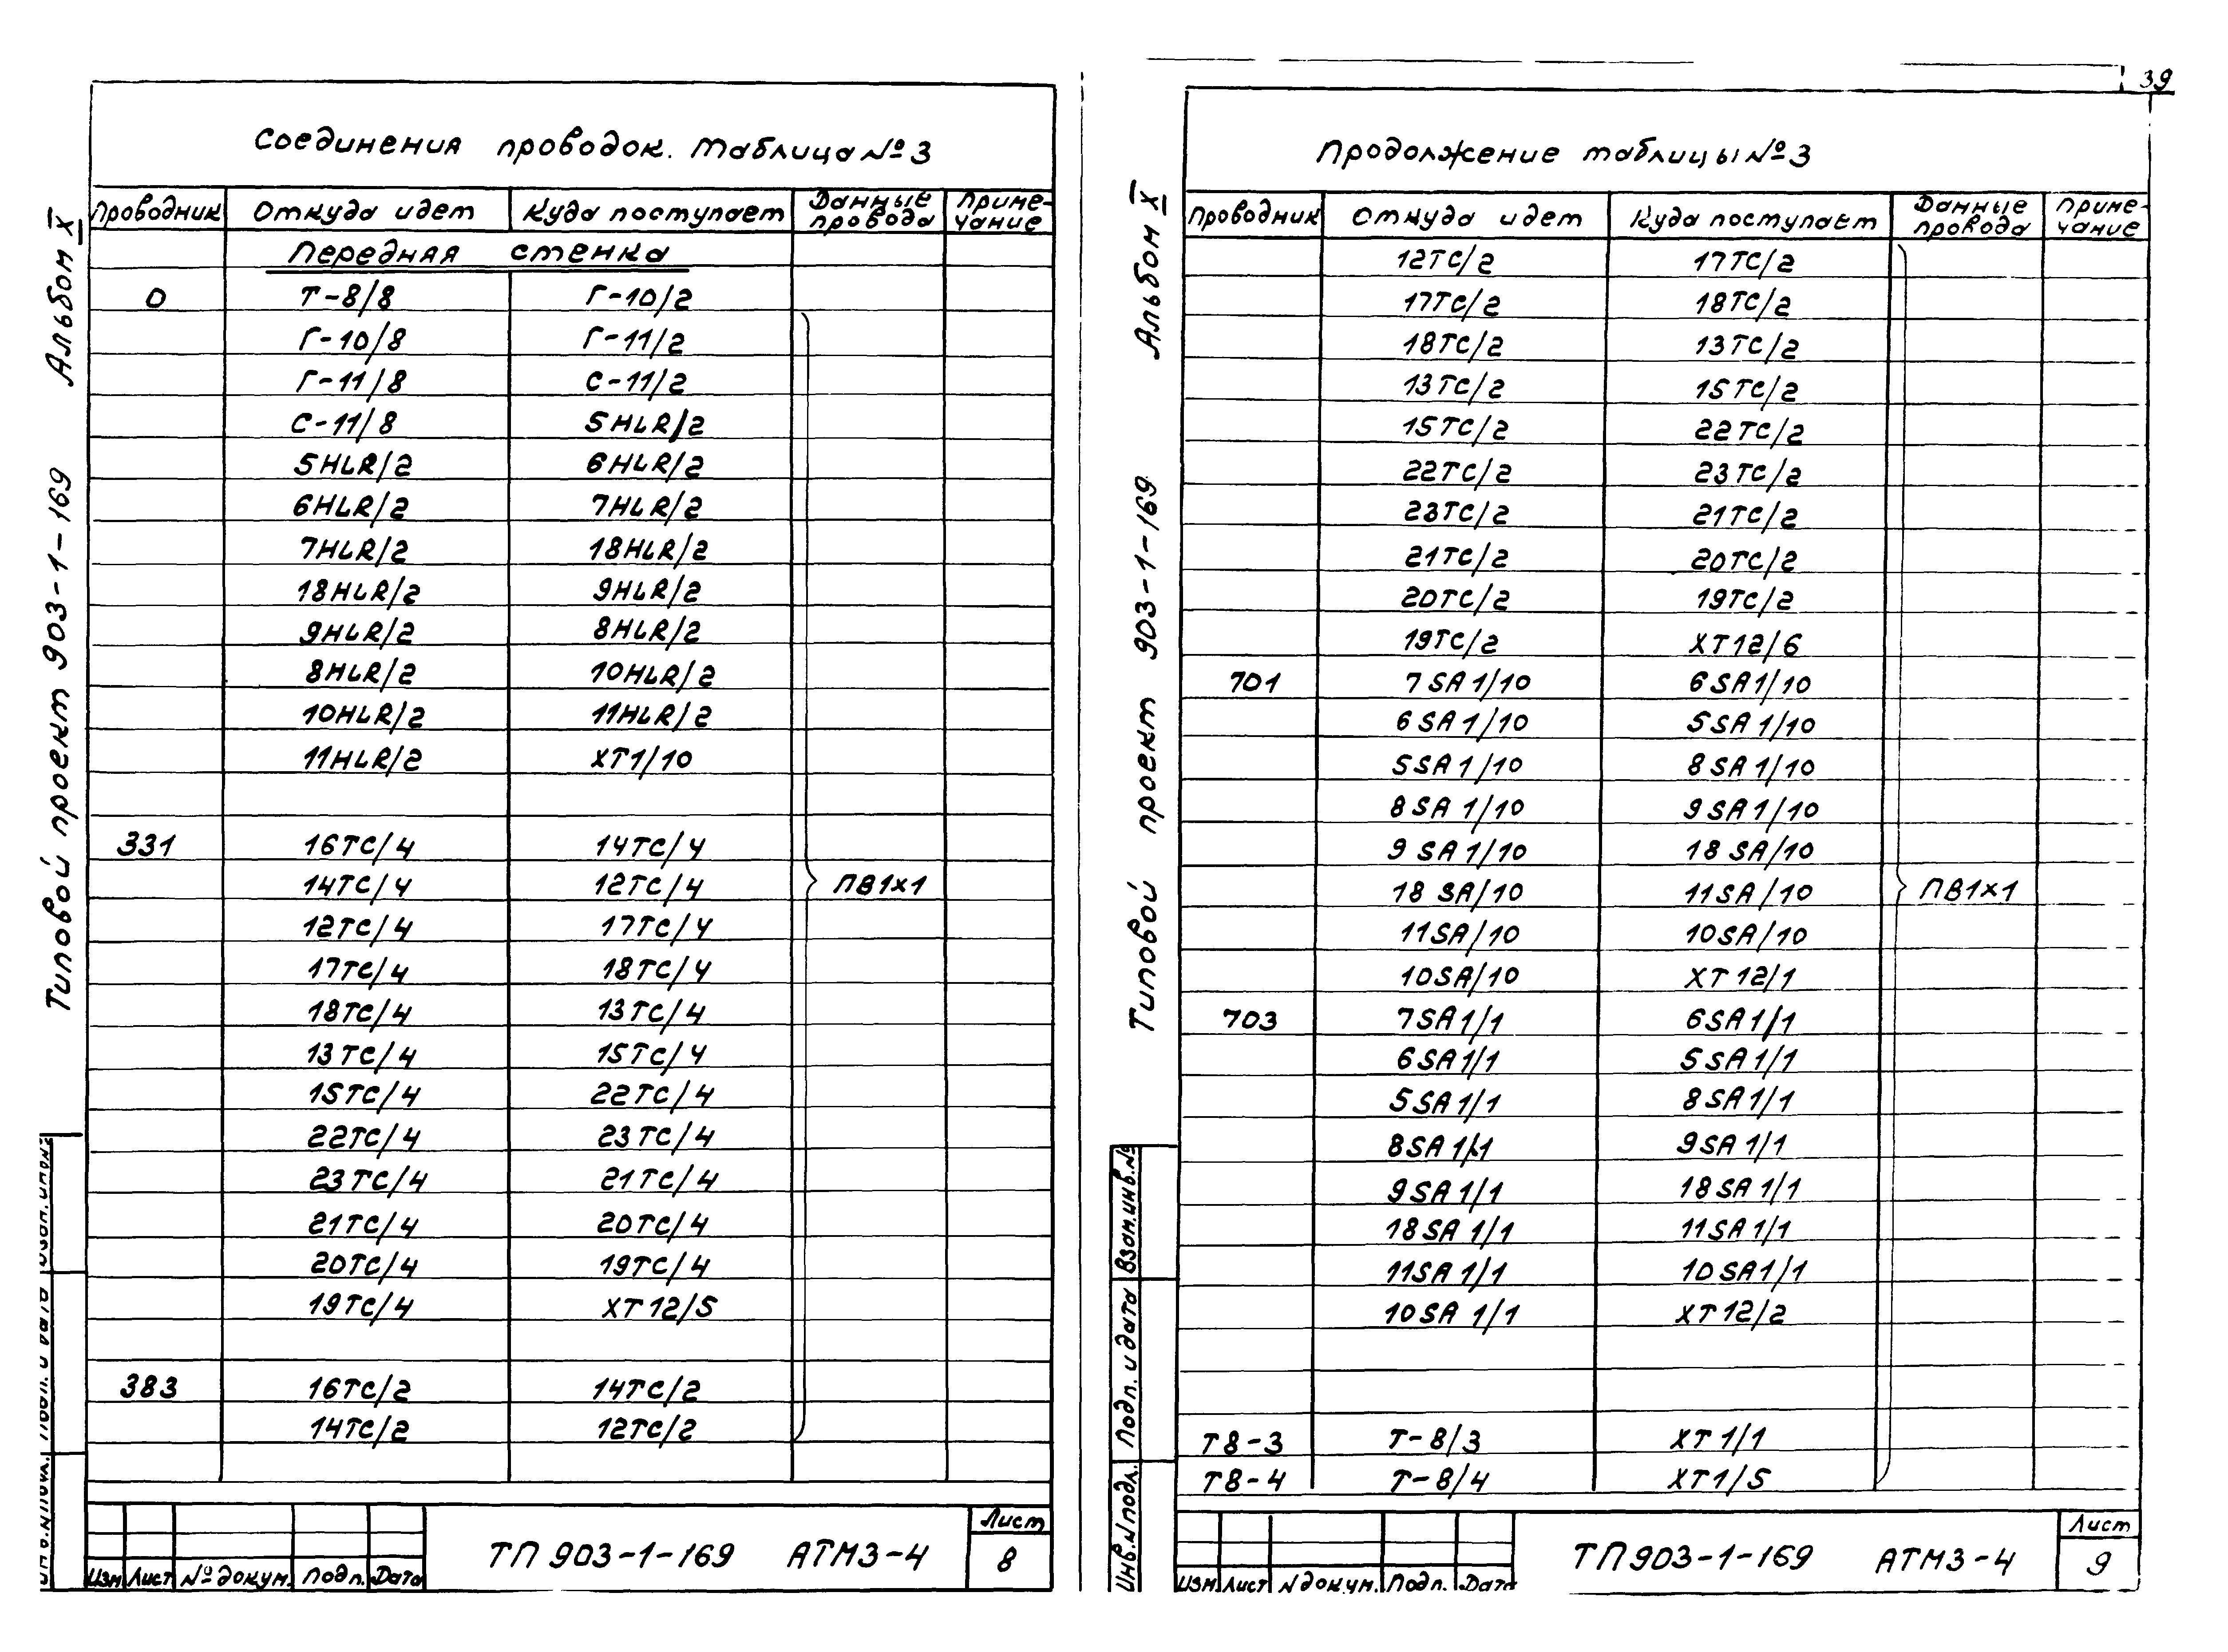 39
Соединения проводок. Таблица №3
Проводник Откуда идет Куда поступает Данные провода Приме-чание
Передняя стенка
0 Т-8/8 Г-10/2
Г-10/8 Г-11/2
Г-11/8 С-11/2
С-11/8 5HLR/2
5HLR/2 6HLR/2
6HLR/2 7HLR/2
7HLR/2 18HLR/2
18HLR/2 9HLR/2
9HLR/2 8HLR/2
8HLR/2 10HLR/2
10HLR/2 11HLR/2
11HLR/2 XT1/10
331 16TC/4 14TC/4
14TC/4 12TC/4 ПВ1х1
12TC/4 17TC/4
17TC/4 18TC/4
18TC/4 13TC/4
13TC/4 15TC/4
15TC/4 22TC/4
22TC/4 23TC/4
23TC/4 21TC/4
21TC/4 20TC/4
20TC/4 19TC/4
19TC/4 XT12/5
383 16TC/2 14TC/2
14TC/2 12TC/2
Изм Лист № докум. Подп. Дата
ТП 903-1-169 АТМ3-4
Лист
8
Типовой проект 903-1-169 Альбом X
Продолжение таблицы №3
Проводник Откуда идет Куда поступает Данные провода Приме-чание
12TC/2 17TC/2
17TC/2 18TC/2
18TC/2 13TC/2
13TC/2 15TC/2
15TC/2 22TC/2
22TC/2 23TC/2
23TC/2 21TC/2
21TC/2 20TC/2
20TC/2 19TC/2
19TC/2 XT12/6
701 7SA1/10 6SA1/10
6SA1/10 5SA1/10
5SA1/10 8SA1/10
8SA1/10 9SA1/10
9SA1/10 18SA/10
18SA/10 11SA/10 ПВ1х1
11SA/10 10SA/10
10SA/10 XT12/1
703 7SA1/1 6SA1/1
6SA1/1 5SA1/1
5SA1/1 8SA1/1
8SA1/1 9SA1/1
9SA1/1 18SA1/1
18SA1/1 11SA1/1
11SA1/1 10SA1/1
10SA1/1 XT12/2
Т8-3 Т-8/3 XT1/1
Т8-4 Т-8/4 XT1/5
Изм Лист N докум. Подп. Дата
ТП903-1-169 АТМ3-4
Лист
9
Типовой проект 903-1-169 Альбом X
Инв.N подл. Подп. и дата Взам.инв.№